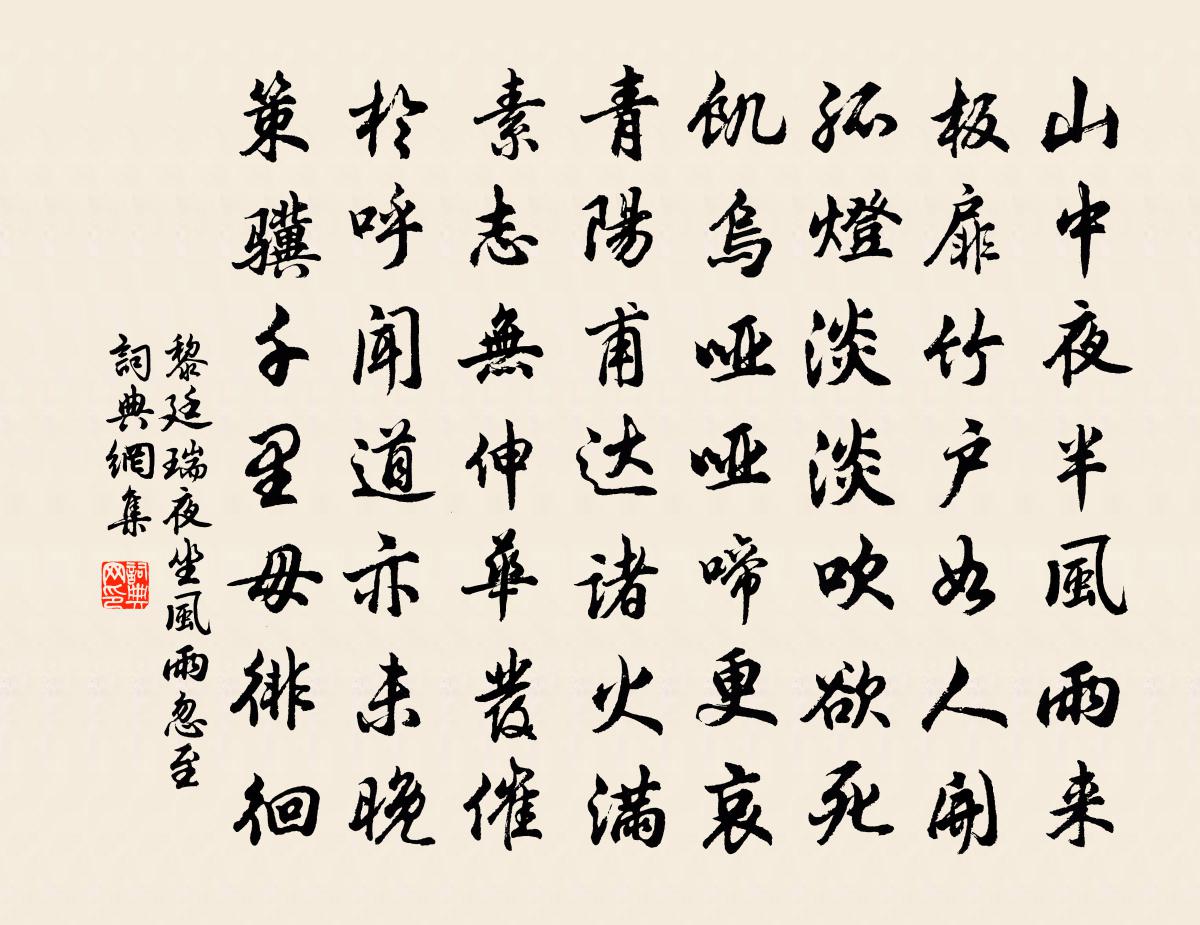 山中夜半風雨来
板扉竹户如人開
孤燈淡淡吹欲死
飢烏哑哑啼更哀
青陽甫达諸火滿
素志無伸華髮催
於呼聞道亦未晚
策骥千里毋徘徊
黎廷瑞夜坐風雨忽至
詞典網集
詞典网印